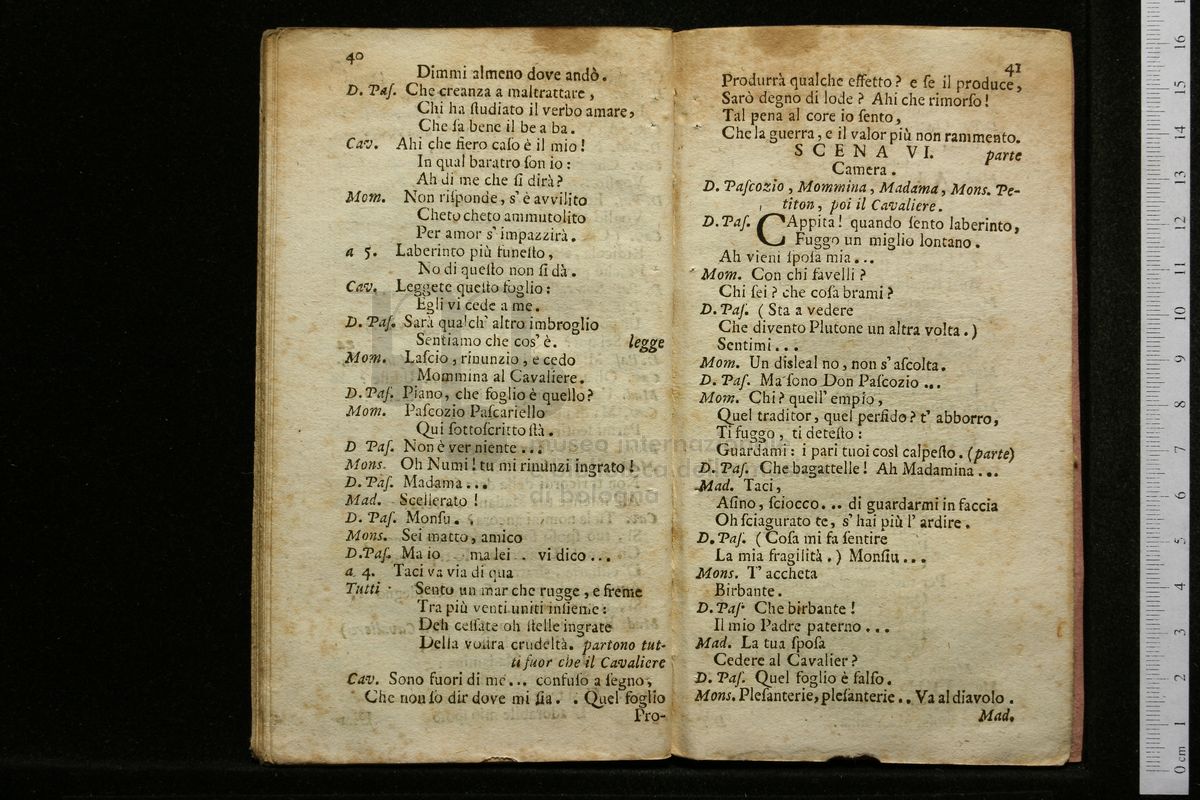 40
Dimmi almeno dove andò.
D. Paſ. Che creanza a maltrattare,
Chi ha ſtudiato il verbo amare,
Che ſa bene il be a ba.
Cav. Ahi che fiero caſo è il mio!
In qual baratro ſon io:
Ah di me che ſi dirà?
Mom. Non riſponde, s'è avvilito
Cheto cheto ammutolito
Per amor s'impazzirà.
a 5. Laberinto più funeſto,
No di queſto non ſi dà.
Cav. Leggete queſto foglio:
Egli vi cede a me.
D. Paſ. Sarà qualch' altro imbroglio
Sentiamo che cos' è. legge
Mom. Laſcio, rinunzio, e cedo
Mommina al Cavaliere.
D. Paſ. Piano, che foglio è quello?
Mom. Paſcozio Paſcariello
Qui ſottoſcritto ſtà.
D Paſ. Non è ver niente...
Mons. Oh Numi! tu mi rinunzi ingrato!
D. Paſ. Madama...
Mad. Scellerato!
D. Paſ. Monſu.
Mons. Sei matto, amico
D. Paſ. Ma io ma lei . vi dico...
a 4. Taci va via di qua
Tutti Sento un mar che rugge, e freme
Tra più venti uniti inſieme:
Deh ceſſate oh ſtelle ingrate
Della voſtra crudeltà. partono tut-
ti fuor che il Cavaliere
Cav. Sono fuori di me... confuſo a ſegno,
Che non ſo dir dove mi ſia. . Quel foglio
Pro-
41
Produrrà qualche effetto? e ſe il produce,
Sarò degno di lode? Ahi che rimorſo!
Tal pena al core io ſento,
Che la guerra, e il valor più non rammento.
SCENA VI. parte
Camera.
D. Paſcozio, Mommina, Madama, Mons. Pe-
titon, poi il Cavaliere.
D. Paſ. CAppita! quando ſento laberinto,
Fuggo un miglio lontano.
Ah vieni ſpoſa mia...
Mom. Con chi favelli?
Chi ſei? che coſa brami?
D. Paſ. (Sta a vedere
Che divento Plutone un altra volta.)
Sentimi...
Mom. Un disleal no, non s' aſcolta.
D. Paſ. Ma ſono Don Paſcozio...
Mom. Chi? quell' empio,
Quel traditor, quel perfido? t' abborro,
Ti fuggo, ti deteſto:
Guardami: i pari tuoi così calpeſto. (parte)
D. Paſ. Che bagattelle! Ah Madamina...
Mad. Taci,
Aſino, ſciocco... di guardarmi in faccia
Oh ſciagurato te, s' hai più l' ardire.
D. Paſ. (Coſa mi fa ſentire
La mia fragilità.) Monſiu...
Mons. T' accheta
Birbante.
D. Paſ. Che birbante!
Il mio Padre paterno...
Mad. La tua ſpoſa
Cedere al Cavalier?
D. Paſ. Quel foglio è falſo.
Mons. Pleſanterie, pleſanterie.. Va al diavolo.
Mad.
museo internazionale
di bologna
0 cm 1 2 3 4 5 6 7 8 9 10 11 12 13 14 15 16